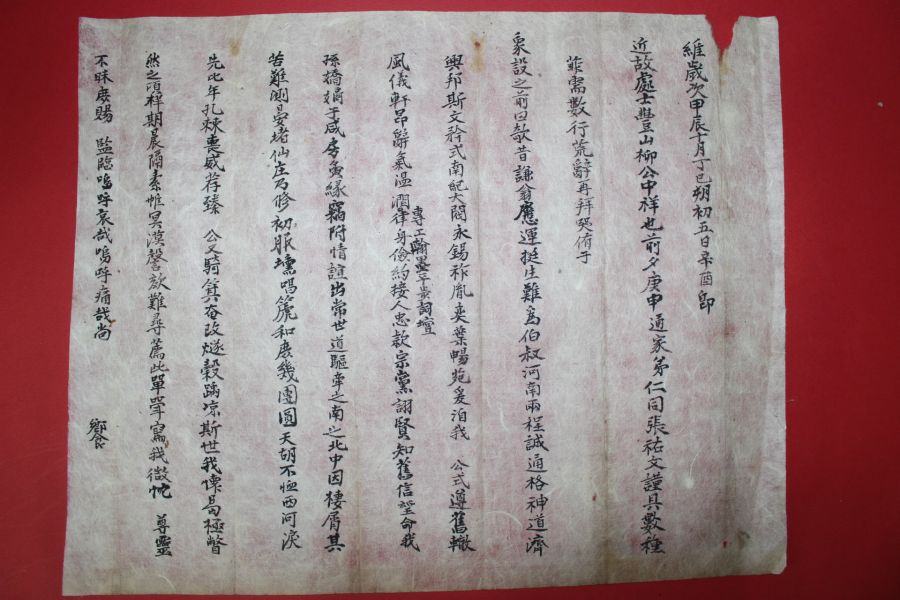 維歲次甲辰十月丁巳朔初五日辛酉卽
近故處士豊山柳公中祥也前夕庚申通家弟仁同張祐文謹具數種
菲需數行荒辭再拜哭侑于
象設之前曰欹昔謙翁應運挺生難爲伯叔河南兩程誠通格神道濟
興邦斯文矜式南配大閤永錫祚胤奕葉暢苑爰洎我 公式遵舊轍
風儀軒昂辭氣溫潤律身儉約接人忠款宗黨詡賢知舊信望命我
專工翰墨平步詞壇
孫 子咸房夤緣竊附情誼出常世道驅牽之南之北中因棲屑其
苦難測晏 仙庄乃修初服壎唱篪和庶幾團圓天胡不恤西河淚
先比年孔棘喪威荐臻 公又騎箕奄改燧穀踽凉斯世我悽曷極瞥
然之頃祥期晨隔素帷冥漠謦欬難尋薦此單 寫我微忱 尊靈
不昧庶賜 監臨嗚呼哀哉嗚呼痛哉尚
饗